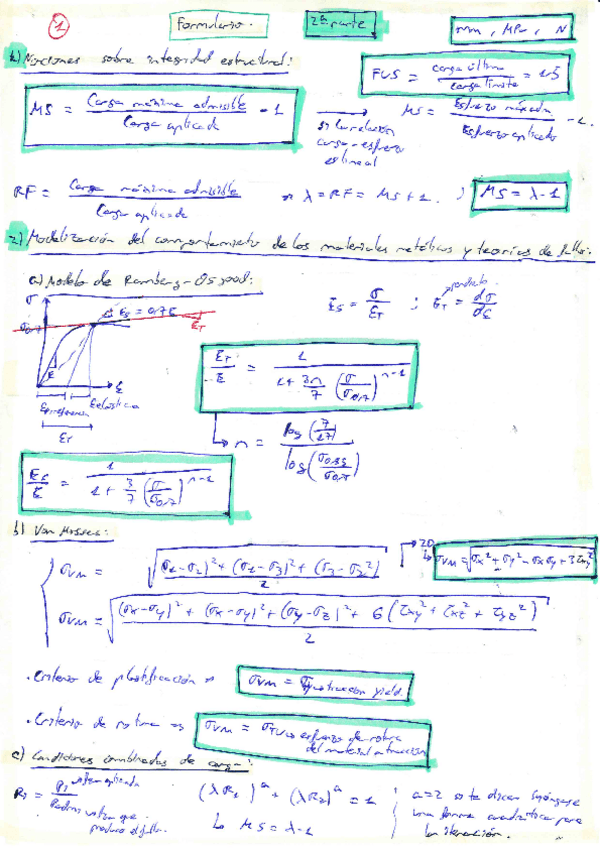 1
Formulario.
2ª parte
mm, MPa, N
1) Nociones sobre integridad estructural:
FUS = carga última / carga límite = 1,5
MS = Carga máxima admisible / Carga aplicada - 1
si la relación carga-esfuerzo es lineal
MS = Esfuerzo máximo / Esfuerzo aplicado - 1.
RF = Carga máxima admisible / Carga aplicada
λ = RF = MS + 1. ; MS = λ - 1
2) Modelización del comportamiento de los materiales metálicos y teorías de fallo:
a) Modelo de Ramberg-Osgood:
σ
Es = 0,7E
σ0,7
ET
E
Es = σ / ET ; ET = dσ / dε
ET / E = 1 / 1 + 3n/7 (σ/σ0,7)^n-1
n = log(7/17) / log(σ0,85/σ0,7)
Es / E = 1 / 1 + 3/7 (σ/σ0,7)^n-1
b) Von Misses:
σVM = √(σ1-σ2)² + (σ2-σ3)² + (σ3-σ2)² / 2
2D
σVM = √σx² + σy² - σxσy + 3τxy²
σVM = √(σx-σy)² + (σx-σy)² + (σy-σz)² + 6(τxy² + τxz² + τyz²) / 2
. Criterio de plastificación
. Criterio de rotura => σVM = σTU esfuerzo de rotura del material a tracción
c) Condiciones combinadas de carga:
(λR1)^a + (λR2)^a = 1
MS = λ - 1
a=2 si te dicen supóngase una forma cuadrática para la iteración.